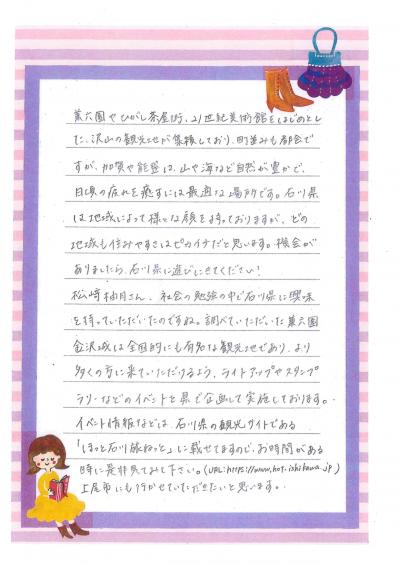 兼六園やひがし茶屋街、21世紀美術館をはじめとし
た、沢山の観光地が集積しており、町並みも都会で
すが、加賀や能登は、山や海など自然が豊かで、
日頃の疲れを癒すには最適な場所です。石川県
は地域によって様々な顔を持っておりますが、どの
地域も住みやすさはピカイチだと思います。機会が
ありましたら、石川県に遊びにきてください!
松崎柚月さん、社会の勉強の中で石川県に興味
を持っていただいたのですね。調べていただいた兼六園
金沢城は全国的にも有名な観光地であり、より
多くの方に来ていただけるよう、ライトアップやスタンプ
ラリーなどのイベントを県で企画して実施しております。
イベント情報などは、石川県の観光サイトである
「ほっと石川旅ねっと」に載せてますので、お時間がある
時に是非見てみて下さい。(URL:https://www.hot-ishikawa.jp)
上尾市にも行かせていただきたいと思います。